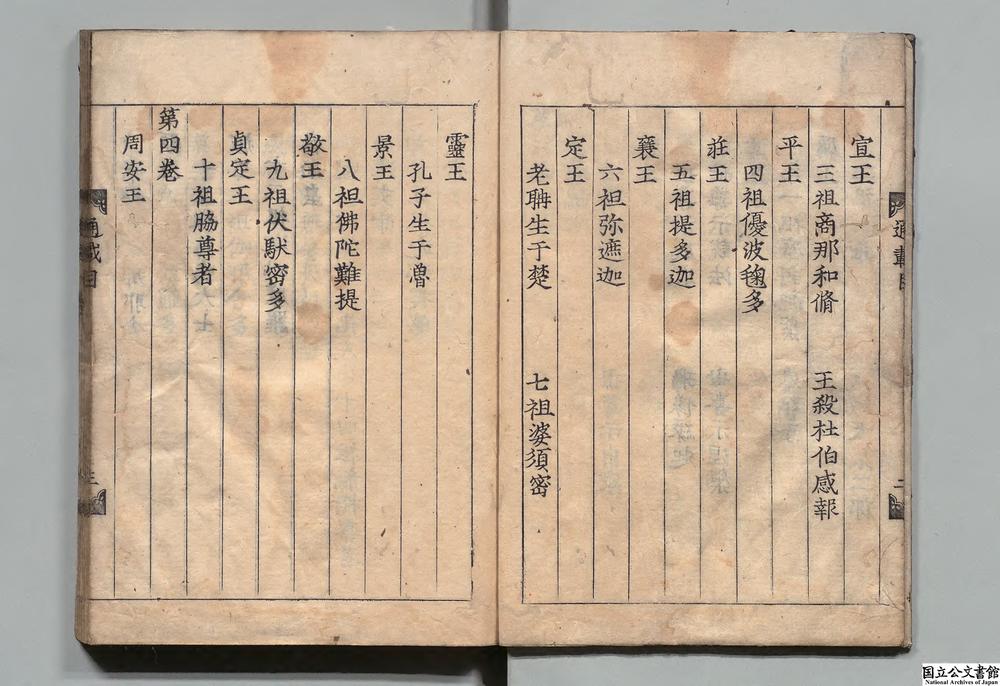 宣王
三祖商那和脩　王殺杜伯感報
平王
四祖優波鞠多
莊王
五祖提多迦
襄王
六祖弥遮迦
定王
老聃生于楚　七祖婆須密
通載目
二
靈王
孔子生于魯
景王
八祖佛陀難提
敬王
九祖伏䭾密多
貞定王
十祖脇尊者
第四卷
周安王
通載目
三
国立公文書館
National Archives of Japan